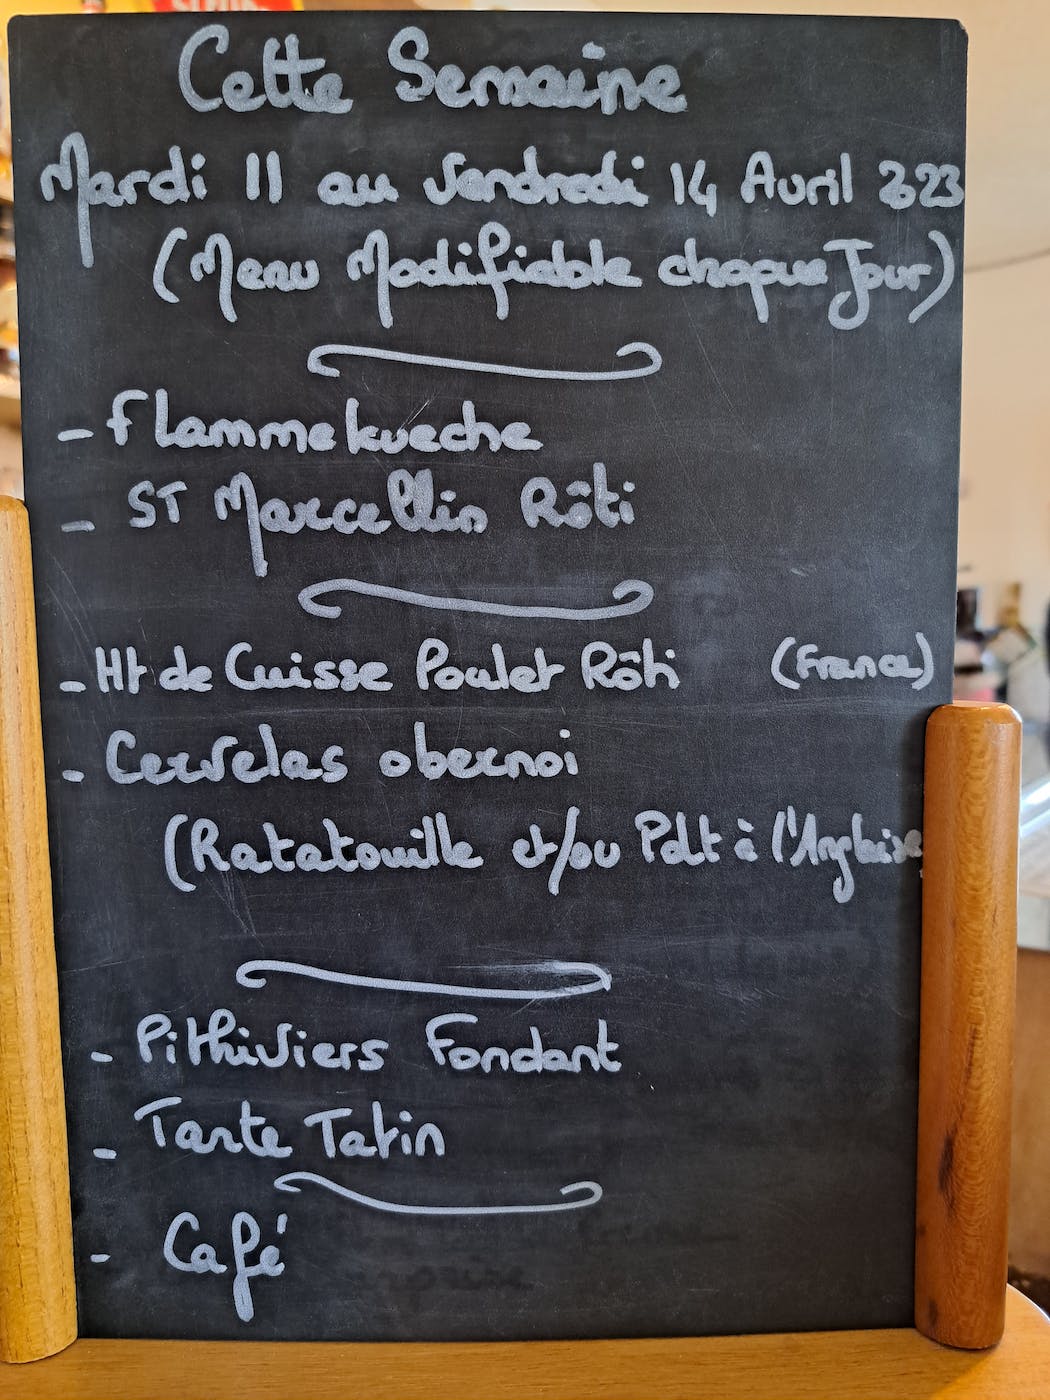 Cette Semaine
Mardi 11 au Vendredi 14 Avril 2023
(Menu Modifiable chaque Jour)
- Flammekueche
- ST Marcellin Rôti
- Ht de Cuisse Poulet Rôti (France)
- Cervelas obernoi
(Ratatouille et/ou Pdt à l'Anglaise
- Pithiviers Fondant
- Tarte Tatin
- Café